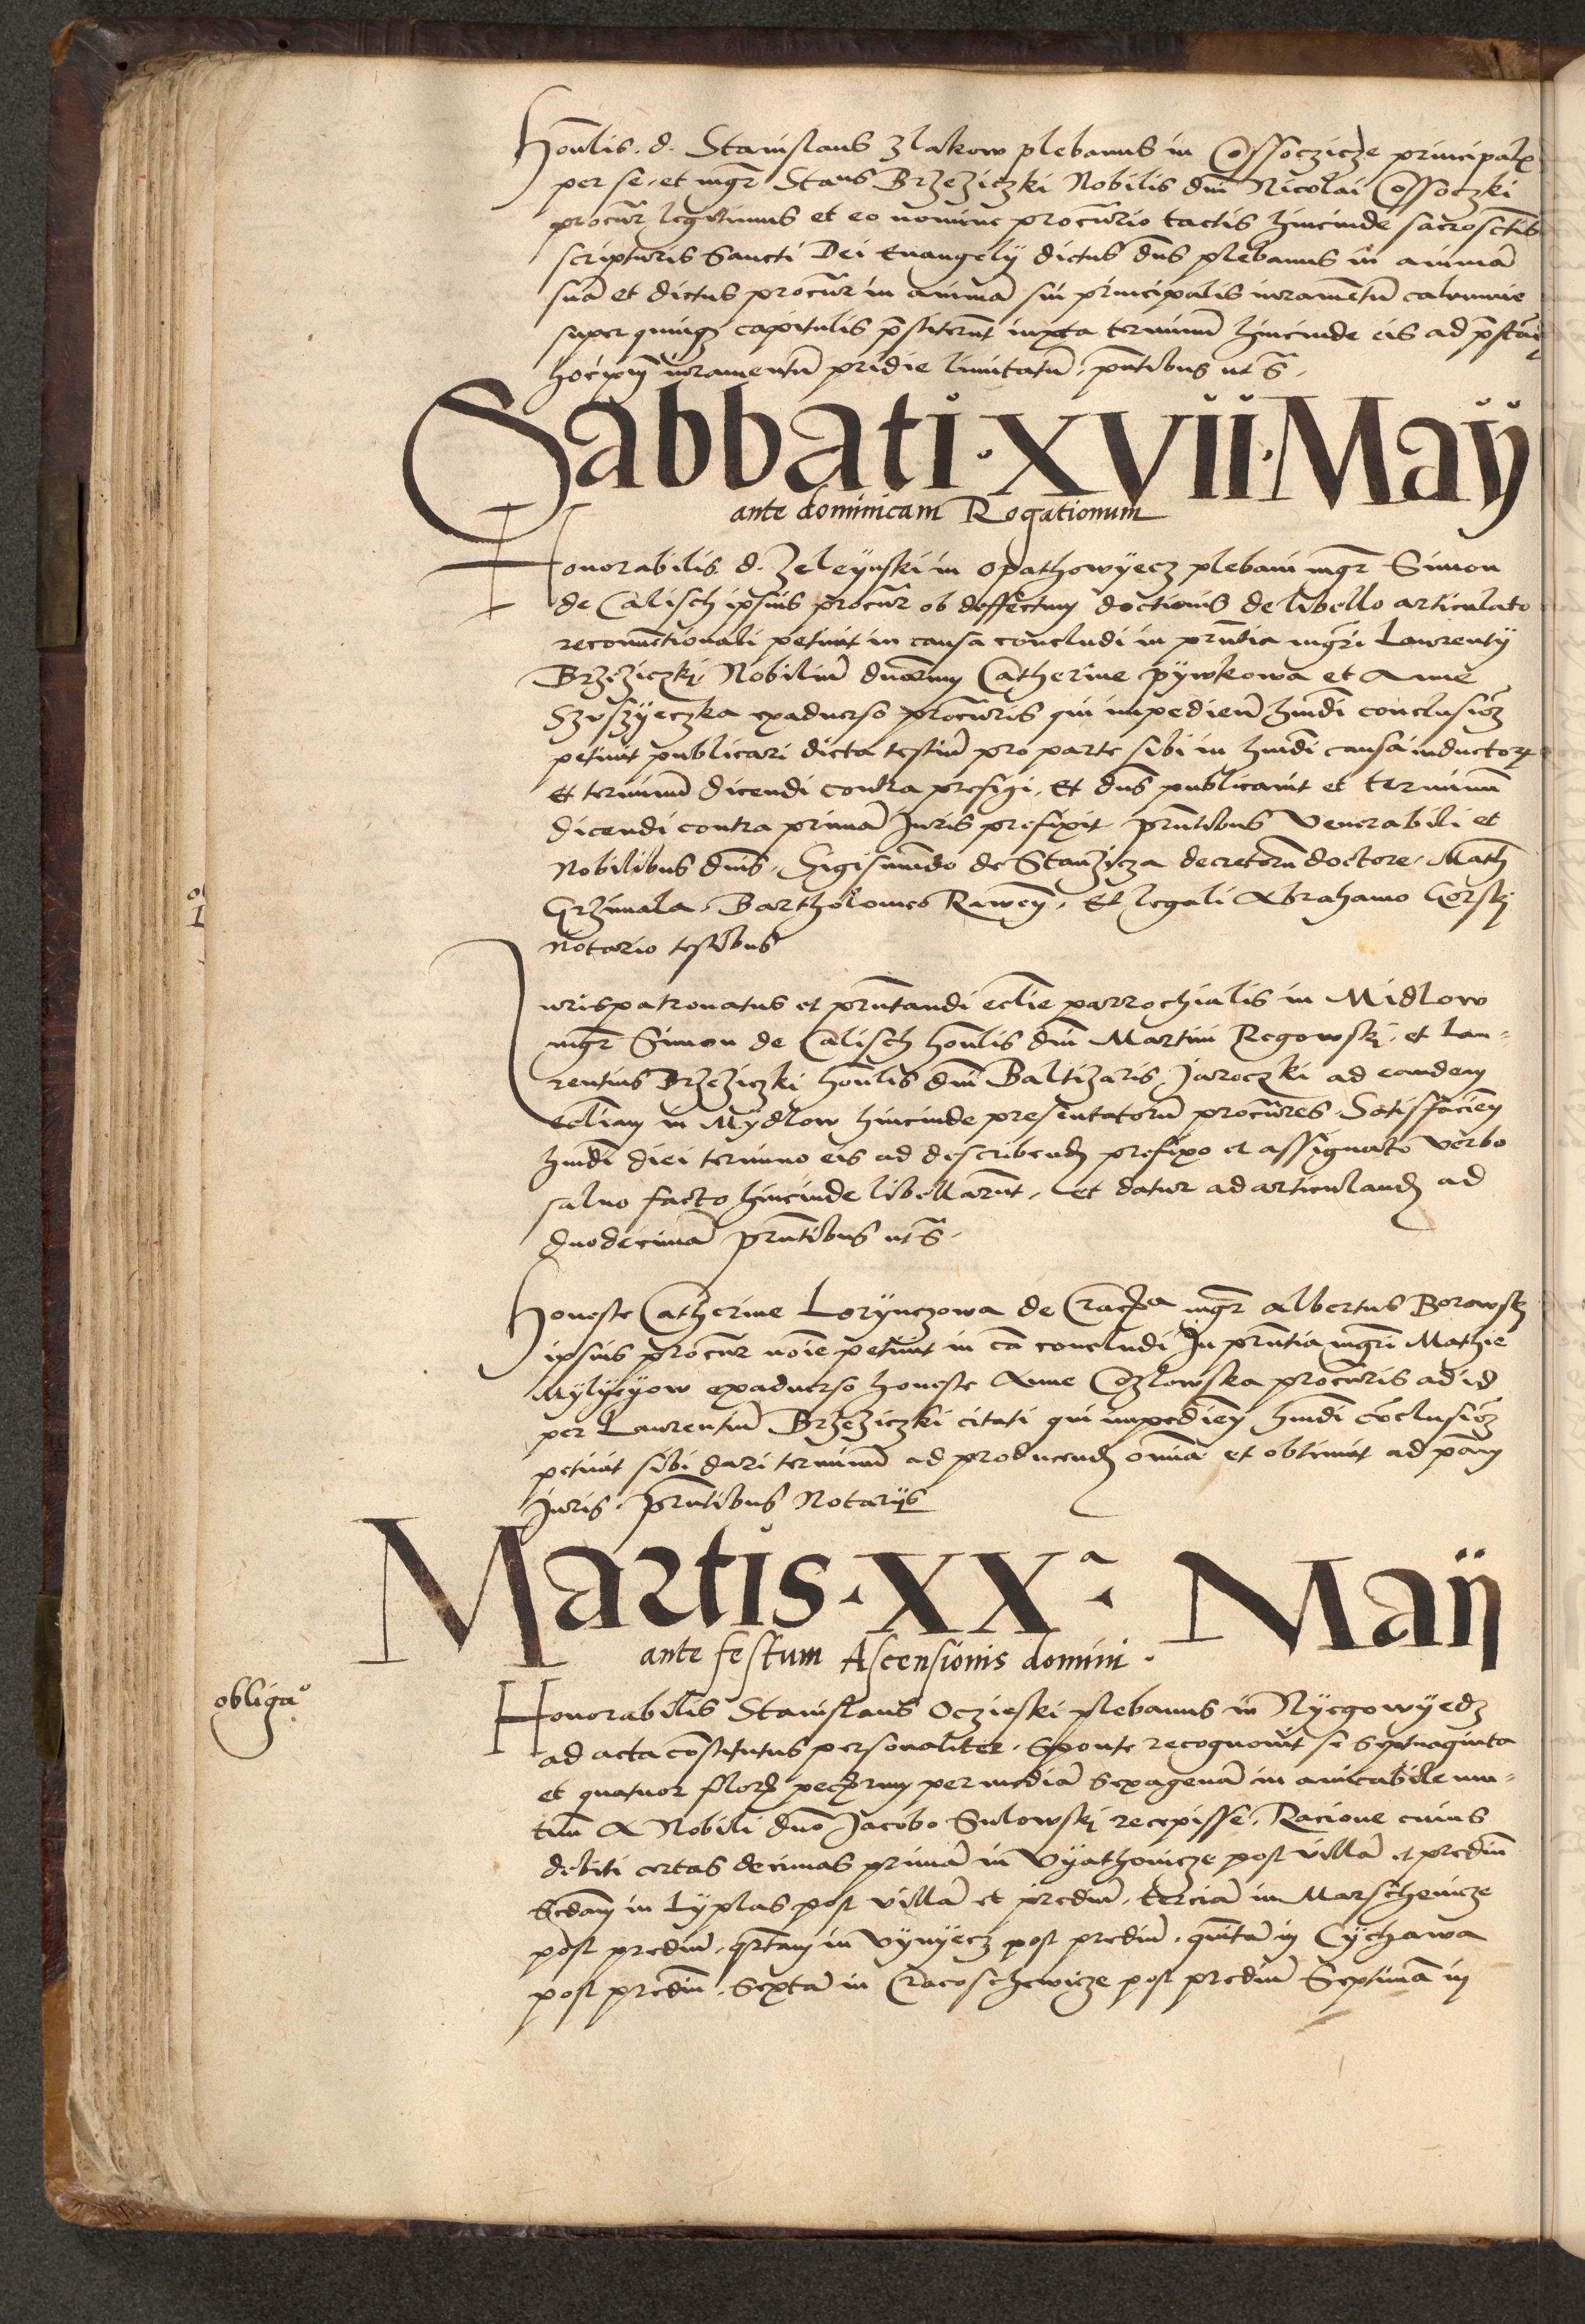 Honlis. d. Stanislaus Zlakow plebanus in Cossoczicze principalr
per se. et mgr Stans Brzeziczki Nobilis dni Nicolai Cossoczki
procur legitimus et eo nomine procurio tactis hincinde sacrosctis
scripturis Sancti Dei Euangelij dictus dns plebanus in animā
suā et dictus procur in animā sui principalis iuramentū calumnie
super quinqz capitulis pstiterunt iuxta terminū hincinde eis ad
iuramentū pridie limitatū. pntibus ut sͣ.
Sabbati · XVII · Maÿ
ante dominicam Rogationum
Honorabilis. d. Zeleÿnski in Opathowÿecz plebani mgr Simon
de Calisch ipsius procur ob deffectum doctionis de libello articulato
reconuentionali petiuit in causa concludi in pnntia mgri Laurentij
Brzeziczki Nobiliū dnarum Catherine pÿwkowa et Anne
exaduerso procuris qui impediens hmdi conclusioz
petiuit publicari dicta testiū pro parte sibi in hmdi causa inductor
et terminū dicendi contra prefigi. Et dns publicauit et terminū
dicendi contra primā Juris prefixit pnntibus Venerabili et
Nobilibus dnis. Sigismundo de Stanzicza decretorū doctore. Math
Grzimala. Bartholomeo Rawen. Et legali Abrahamo Gorski
Notario testibus
Jurispatronatus et pnntandi eclie parrochialis in Midlow
mgr Simon de Calisch honlis dni Martini Regowski. et Lau-
rentius Brzeziczki honlis dni Baltizaris Jaroczki ad eandem
ecliam in Mÿdlow hincinde presentatorū procures. Satisfacien
hmdi diei termino eis ad describend prefixo et assignato verbo
saluo facto hincinde libellarunt. et datur ad articuland ad
duodecimā pnntibus ut sͣ.
Honeste Catherine Lorÿnczowa de Crac mgr Albertus Borowski
ipsius procur noie petiuit in ca concludi In pnntia mgri Mathie
Mÿlÿeÿow exaduerso honeste Anne Cozlowska procuris ad id
per Laurentiū Brzeziczki citati qui impedien hmdi coclusioz
petiuit sibi dari terminū ad producend omnia et obtinuit ad pam
Juris. pnntibus Notarijs
Martis · XXª · Maij
ante festum Ascensionis domini ·
obligaᵒ
Honorabilis Stanislaus Oczieski plebanus in Nÿegowÿedz
ad acta constitutus personaliter. Sponte recognouit se Septuaginta
et quatuor flor peciarum per mediā sexagenā in amicabile mu-
tuū A Nobili dno Jacobo Sulowski recepisse. Racione cuius
debiti certas decimas primā in Vÿathowicze post villā et prediū
Scdam in Lÿplas post villā et prediū. terciā in Marschowicze
post prediū. qrtam in Vÿnÿecz post prediū. quintā in Cÿchawa
post prediū. Sextā in Cracoschowicze post prediū Septimā in